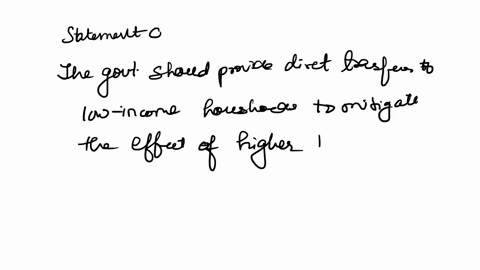 Statement C
The govt. should provide diret trasfers to
low-income househods to mitigate
the effect of higher